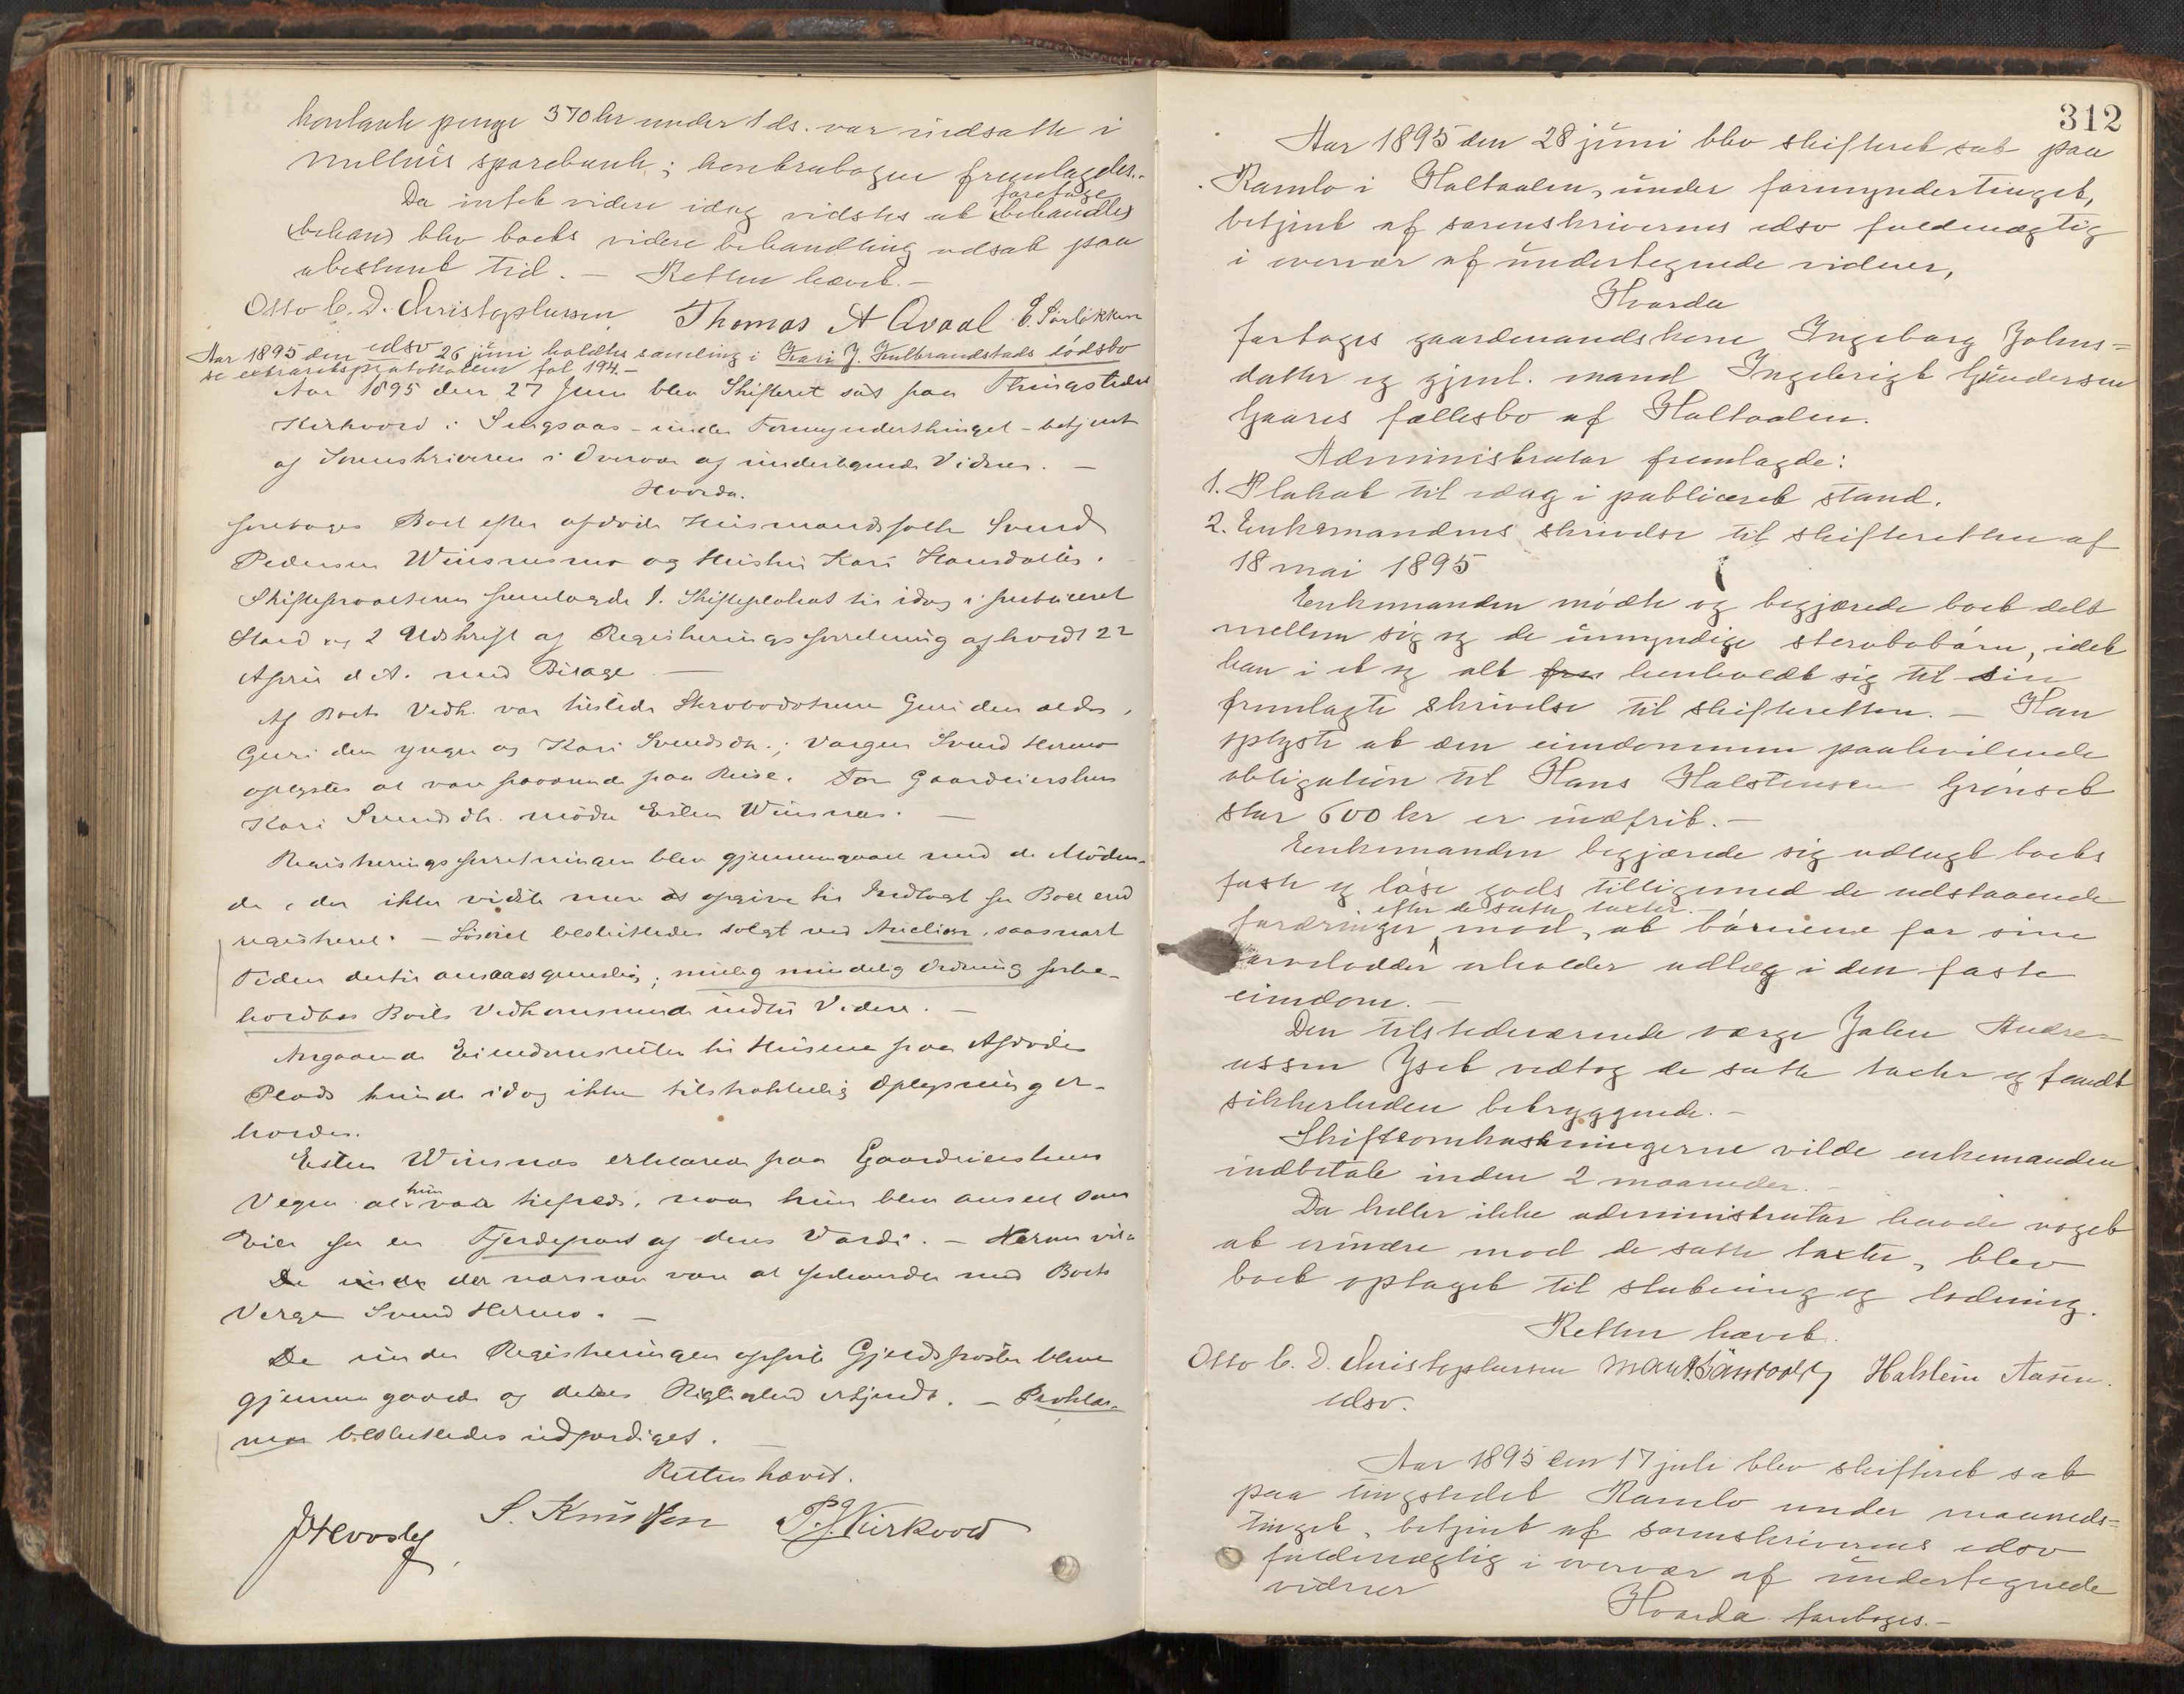 kontante penge 370 kr under 1 ds. var indsatte i
sparebank; kontrabogen fremlagdes.
Da intet videre idag vidstes at (behandles) foretage
(behan) blev boets videre behandling udsat paa
ubestemt tid. — Retten hævet. —
Otto C. D. Christophersen Thomas A Qvaal E. Sørløkken
edsv
Aar 1895 den 26 juni holdtes samling i Kari J. Kulbrandstads dødsbo
se extraretsprotokollen fol 194. —
Aar 1895 den 27 Juni blev Skifteret sat paa Thingstedet
Kirkvold i Singsaas - under Formynderthinget - betjent
af Sorenskriveren i Overvær af undertegnede Vidner. —
Hvorda.
foretoges Boet efter afdøde Husmandsfolk Svend
Pedersen Winsnesmo og Hustru Kari Hansdatter.
Skifteforvalteren fremlagde 1. Skifteplakat til idag i publiceret
Stand og 2 Udskrift af Registreringsforretning afholdt 22
April d. A. med Bilage —
Af Boets Vedk. var tilstede Stervbodøtrene Guri den ældre,
Guri den yngre og Kari Svendsdtr.; Værgen Svend Hermo
oplystes at være fraværende paa Reise. For Gaardeierskens
Kari Svendsdtr. mødte Esten Winsnes. —
Registreringsforretningen blev gjennemgaaet med de Møden-
de, der ikke vidste mere at opgive til Indtægt for Boet end
registreret. — Løsøret besluttedes solgt ved Auction, saasnart
Tiden dertil ansaaes gunstig; mulig mindelig Ordning forbe-
holdtes Boets Vedkommende indtil Videre. —
Angaaende Eiendomsretten til Husene paa Afdødes
Plads kunde idag ikke tilstrækkelig Oplysning er-
holdes.
Esten Winsnes erklærede paa Gaardeierskens
Vegne at hun var tilfreds, naar hun blev anseet som
Eier for en Fjerdepart af deres Værdi. — Herom vil-
de der nærmere være at forhandle med Boets
Verge Svend Hermo. —
De under Registreringen opførte Gjeldsposter bleve
gjennemgaaede og deres Rigtighed erkjendt. — Prokla-
ma besluttedes udfærdiget. —
Retten hævet.
S. Knudsen P. J. Kirkvold
312
Aar 1895 den 28 juni blev skifteret sat paa
Ramlo i Holtaalen, under formyndertinget,
betjent af sorenskriverens edsv fuldmægtig
i overvær af undertegnede vidner,
Hvorda
fortoges gaardmandskone Ingeborg Johns=
datter og gjenl. mand Ingebrigt Gundersen
Gaares fællesbo af Holtaalen.
Administrator fremlagde:
1. Plakat til idag i publiceret stand.
2. Enkemandens skrivelse til skifteretten af
18 mai 1895
Enkemanden mødte og begjærede boet delt
mellem sig og de umyndige stervbobørn, idet
han i et og alt fre henholdt sig til sin
fremlagte skrivelse til skifteretten. — Han
oplyste at den eiendommen paahvilende
obligation til Hans Halstensen Grønset
stor 600 kr er indfrit. —
Enkemanden begjærede sig udlagt boets
faste og løse gods tilligemed de udstaaende
fordringer efter de satte taxter. mod, at børnene for sine
arvelodder erholder udlæg i den faste
eiendom. —
Den tilstedeværende værge John Andre=
assen Yset vedtog de satte taxter og fandt
sikkerheden betryggende. —
Skifteomkostningerne vilde enkemanden
indbetale inden 2 maaneder. —
Da heller ikke administrator havde noget
at erindre mod de satte taxter, blev
boet optaget til slutning og lodning.
Retten hævet.
Otto C. D. Christophersen Halstein Aasen.
edsv.
Aar 1895 den 17 juli blev skifteret sat
paa tingstedet Ramlo under maaneds=
tinget, betjent af sorenskriverens edsv
fuldmægtig i overvær af undertegnede
vidner
Hvorda foretoges. —